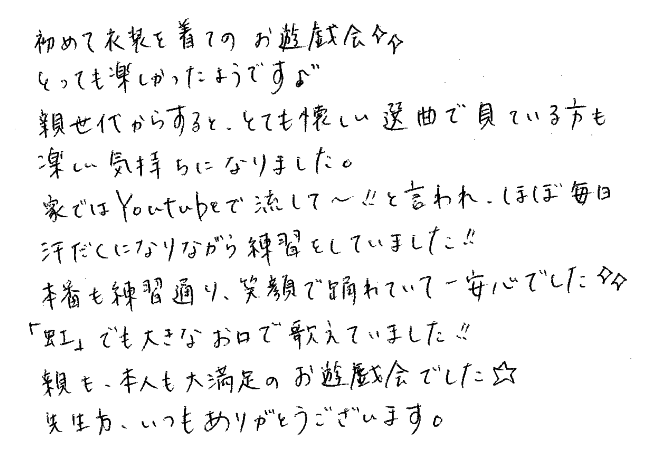 初めて衣装を着てのお遊戯会✧✧
とっても楽しかったようです♪
親世代からすると、とても懐しい選曲で見ている方も
楽しい気持ちになりました。
家ではYoutubeで流して〜!!と言われ、ほぼ毎日
汗だくになりながら練習をしていました!!
本番も練習通り、笑顔で踊れていて一安心でした✧✧
「虹」でも大きなお口で歌えていました!!
親も、本人も大満足のお遊戯会でした☆
先生方、いつもありがとうございます。